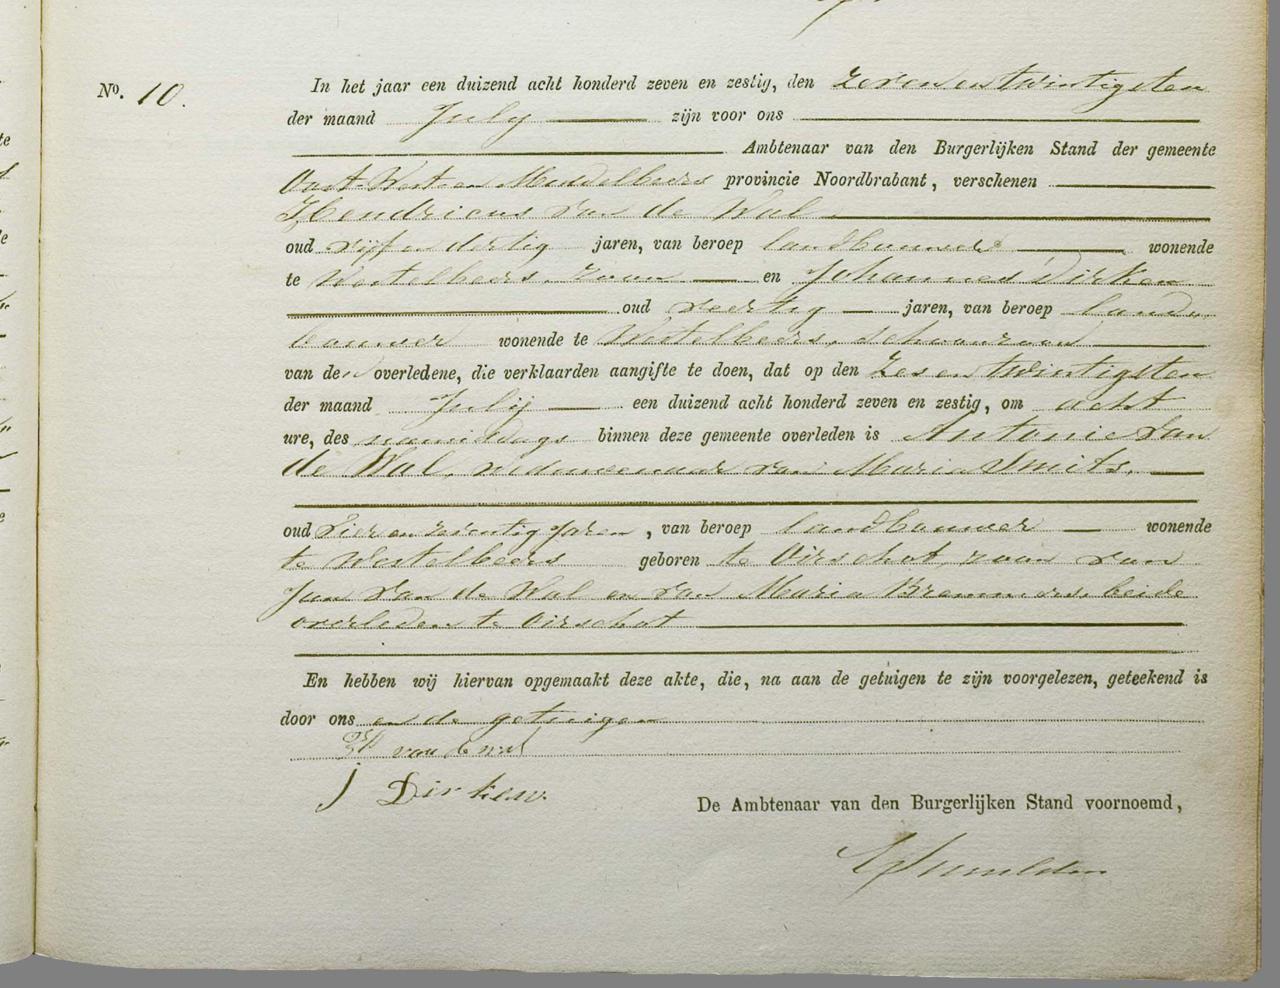 No. 10.
In het jaar een duizend acht honderd zeven en zestig, den zeven en twintigsten
der maand July zijn voor ons
Ambtenaar van den Burgerlijken Stand der gemeente
Oost-West en Middelbeers provincie Noordbrabant, verschenen
Hendricus van de Wal
oud vijf en dertig jaren, van beroep landbouwer wonende
te Westelbeers, zoon en Johannes Dirken
oud veertig jaren, van beroep land-
bouwer wonende te Westelbeers, schoonzoon
van de overledene, die verklaarden aangifte te doen, dat op den zes en twintigsten
der maand July een duizend acht honderd zeven en zestig, om acht
ure, des namiddags binnen deze gemeente overleden is Antonie van
de Wal, weduwenaar van Maria Smits,
oud vier en zeventig jaren, van beroep landbouwer wonende
te Westelbeers geboren te Oirschot, zoon van
Jan van de Wal en van Maria Bremmers, beide
overleden te Oirschot
En hebben wij hiervan opgemaakt deze akte, die, na aan de getuigen te zijn voorgelezen, geteekend is
door ons en de getuigen
van de wal
J Dirken
De Ambtenaar van den Burgerlijken Stand voornoemd,